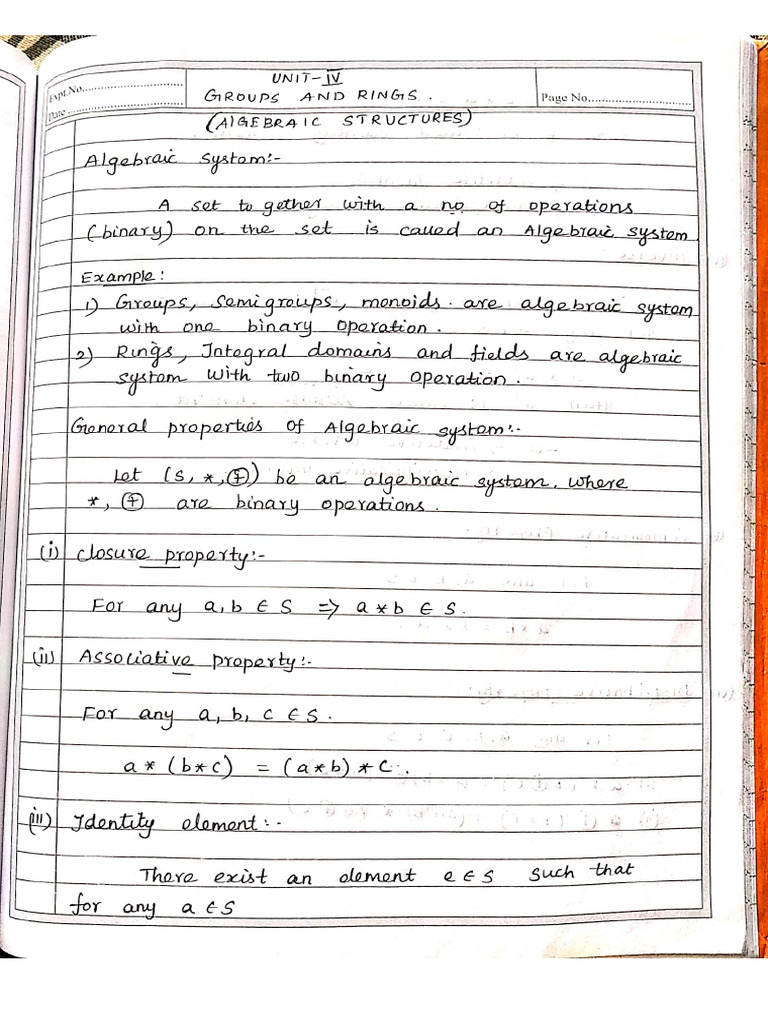 UNIT-IV
Expt.No.
GROUPS AND RINGS.
Page No.
Date
(ALGEBRAIC STRUCTURES)
Algebraic system:-
A set to gether with a no of operations
(binary) on the set is called an Algebraic system
Example:
1) Groups, Semigroups, monoids. are algebraic system
with one binary operation.
2) Rings, Integral domains and fields are algebraic
system with two binary operation.
General properties of Algebraic system:-
Let (S, *, ⊕) be an algebraic system, where
*, ⊕ are binary operations.
(i) closure property:-
For any a, b ∈ S ⇒ a * b ∈ S.
(ii) Associative property:-
For any a, b, c ∈ S.
a * (b * c) = (a * b) * c.
(iii) Identity element:-
There exist an element e ∈ S such that
for any a ∈ S